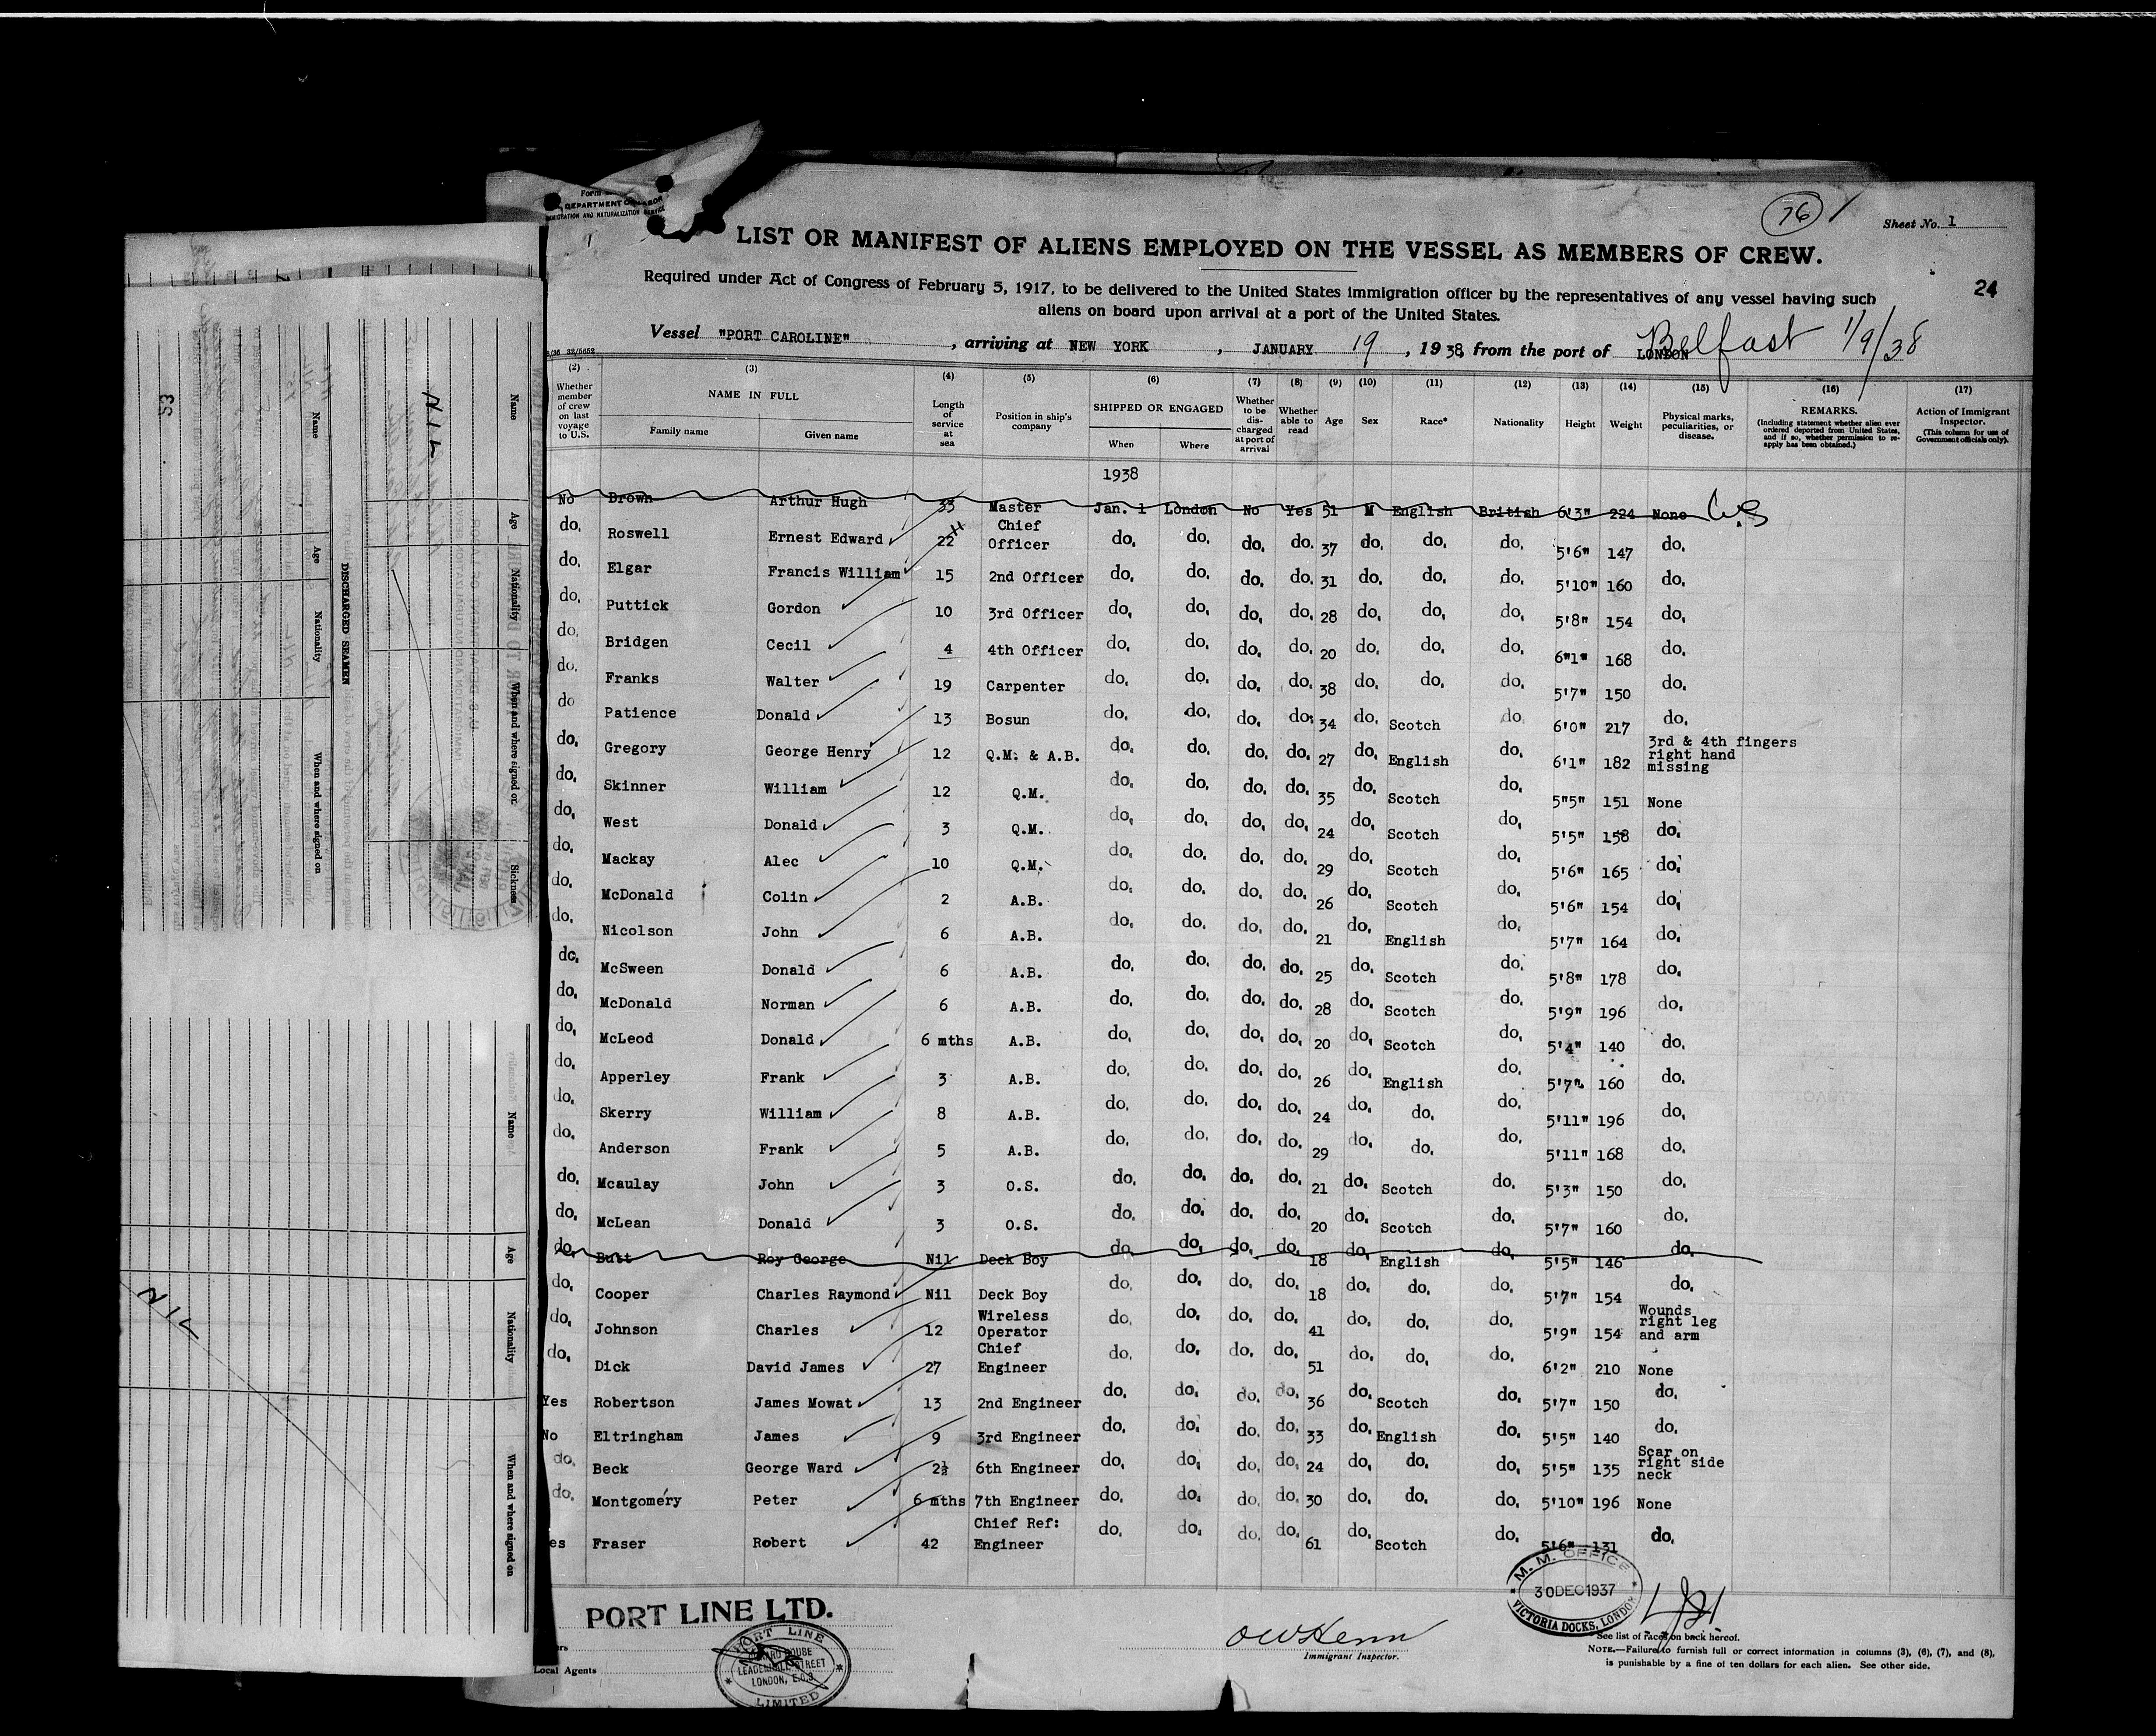 Form
DEPARTMENT OF LABOR
IMMIGRATION AND NATURALIZATION SERVICE
76
Sheet No. 1
24
LIST OR MANIFEST OF ALIENS EMPLOYED ON THE VESSEL AS MEMBERS OF CREW.
Required under Act of Congress of February 5, 1917, to be delivered to the United States immigration officer by the representatives of any vessel having such
aliens on board upon arrival at a port of the United States.
Vessel "PORT CAROLINE", arriving at NEW YORK, JANUARY 19, 1938, from the port of LONDON Belfast 1/9/38
(2) Whether member of crew on last voyage to U.S. (3) NAME IN FULL Family name Given name (4) Length of service at sea (5) Position in ship's company (6) SHIPPED OR ENGAGED When Where (7) Whether to be discharged at port of arrival (8) Whether able to read (9) Age (10) Sex (11) Race* (12) Nationality (13) Height (14) Weight (15) Physical marks, peculiarities, or disease. (16) REMARKS. (Including statement whether alien ever ordered deported from United States, and if so, whether permission to re-apply has been obtained.) (17) Action of Immigrant Inspector. (This column for use of Government officials only).
1938
No Brown Arthur Hugh 33 Master Jan. 1 London No Yes 51 M English British 6'3" 224 None
do. Roswell Ernest Edward 22 Chief Officer do. do. do. do. 37 do. do. do. 5'6" 147 do.
do. Elgar Francis William 15 2nd Officer do. do. do. do. 31 do. do. do. 5'10" 160 do.
do. Puttick Gordon 10 3rd Officer do. do. do. do. 28 do. do. do. 5'8" 154 do.
do. Bridgen Cecil 4 4th Officer do. do. do. do. 20 do. do. do. 6"1" 168 do.
do. Franks Walter 19 Carpenter do. do. do. do. 38 do. do. do. 5'7" 150 do.
do Patience Donald 13 Bosun do. do. do. do. 34 do. Scotch do. 6'0" 217 do.
do. Gregory George Henry 12 Q.M. & A.B. do. do. do. do. 27 do. English do. 6'1" 182 3rd & 4th fingers right hand missing
do. Skinner William 12 Q.M. do. do. do. do. 35 do. Scotch do. 5"5" 151 None
do. West Donald 3 Q.M. do. do. do. do. 24 do. Scotch do. 5'5" 158 do.
do. Mackay Alec 10 Q.M. do. do. do. do. 29 do. Scotch do. 5'6" 165 do.
do. McDonald Colin 2 A.B. do. do. do. do. 26 do. Scotch do. 5'6" 154 do.
do. Nicolson John 6 A.B. do. do. do. do. 21 do. English do. 5'7" 164 do.
do. McSween Donald 6 A.B. do. do. do. do. 25 do. Scotch do. 5'8" 178 do.
do. McDonald Norman 6 A.B. do. do. do. do. 28 do. Scotch do. 5'9" 196 do.
do. McLeod Donald 6 mths A.B. do. do. do. do. 20 do. Scotch do. 5'4" 140 do.
do. Apperley Frank 3 A.B. do. do. do. do. 26 do. English do. 5'7" 160 do.
do. Skerry William 8 A.B. do. do. do. do. 24 do. do. do. 5'11" 196 do.
do. Anderson Frank 5 A.B. do. do. do. do. 29 do. do. do. 5'11" 168 do.
do. Mcaulay John 3 O.S. do. do. do. do. 21 do. Scotch do. 5'3" 150 do.
do. McLean Donald 3 O.S. do. do. do. do. 20 do. Scotch do. 5'7" 160 do.
do. Butt Roy George Nil Deck Boy do. do. do. do. 18 do. English do. 5'5" 146 do.
do. Cooper Charles Raymond Nil Deck Boy do. do. do. do. 18 do. do. do. 5'7" 154 do.
do. Johnson Charles 12 Wireless Operator do. do. do. do. 41 do. do. do. 5'9" 154 Wounds right leg and arm
do. Dick David James 27 Chief Engineer do. do. do. do. 51 do. do. do. 6'2" 210 None
Yes Robertson James Mowat 13 2nd Engineer do. do. do. do. 36 do. Scotch do. 5'7" 150 do.
No Eltringham James 9 3rd Engineer do. do. do. do. 33 do. English do. 5'5" 140 do.
do. Beck George Ward 2½ 6th Engineer do. do. do. do. 24 do. do. do. 5'5" 135 Scar on right side neck
do. Montgomery Peter 6 mths 7th Engineer do. do. do. do. 30 do. do. do. 5'10" 196 None
es Fraser Robert 42 Chief Ref: Engineer do. do. do. do. 61 do. Scotch do. 5'6" 131 do.
PORT LINE LTD.
Local Agents
PORT LINE LIMITED
LEADENHALL STREET
LONDON, E.C.3
Immigrant Inspector.
M. M. OFFICE
30 DEC 1937
VICTORIA DOCKS, LONDON
See list of races on back hereof.
NOTE.—Failure to furnish full or correct information in columns (3), (6), (7), and (8),
is punishable by a fine of ten dollars for each alien. See other side.
53
Name Age Nationality When and where signed on
DISCHARGED SEAMEN
NIL
Name Age Nationality When and where signed on Sickness
NIL
Name Age Nationality When and where signed on